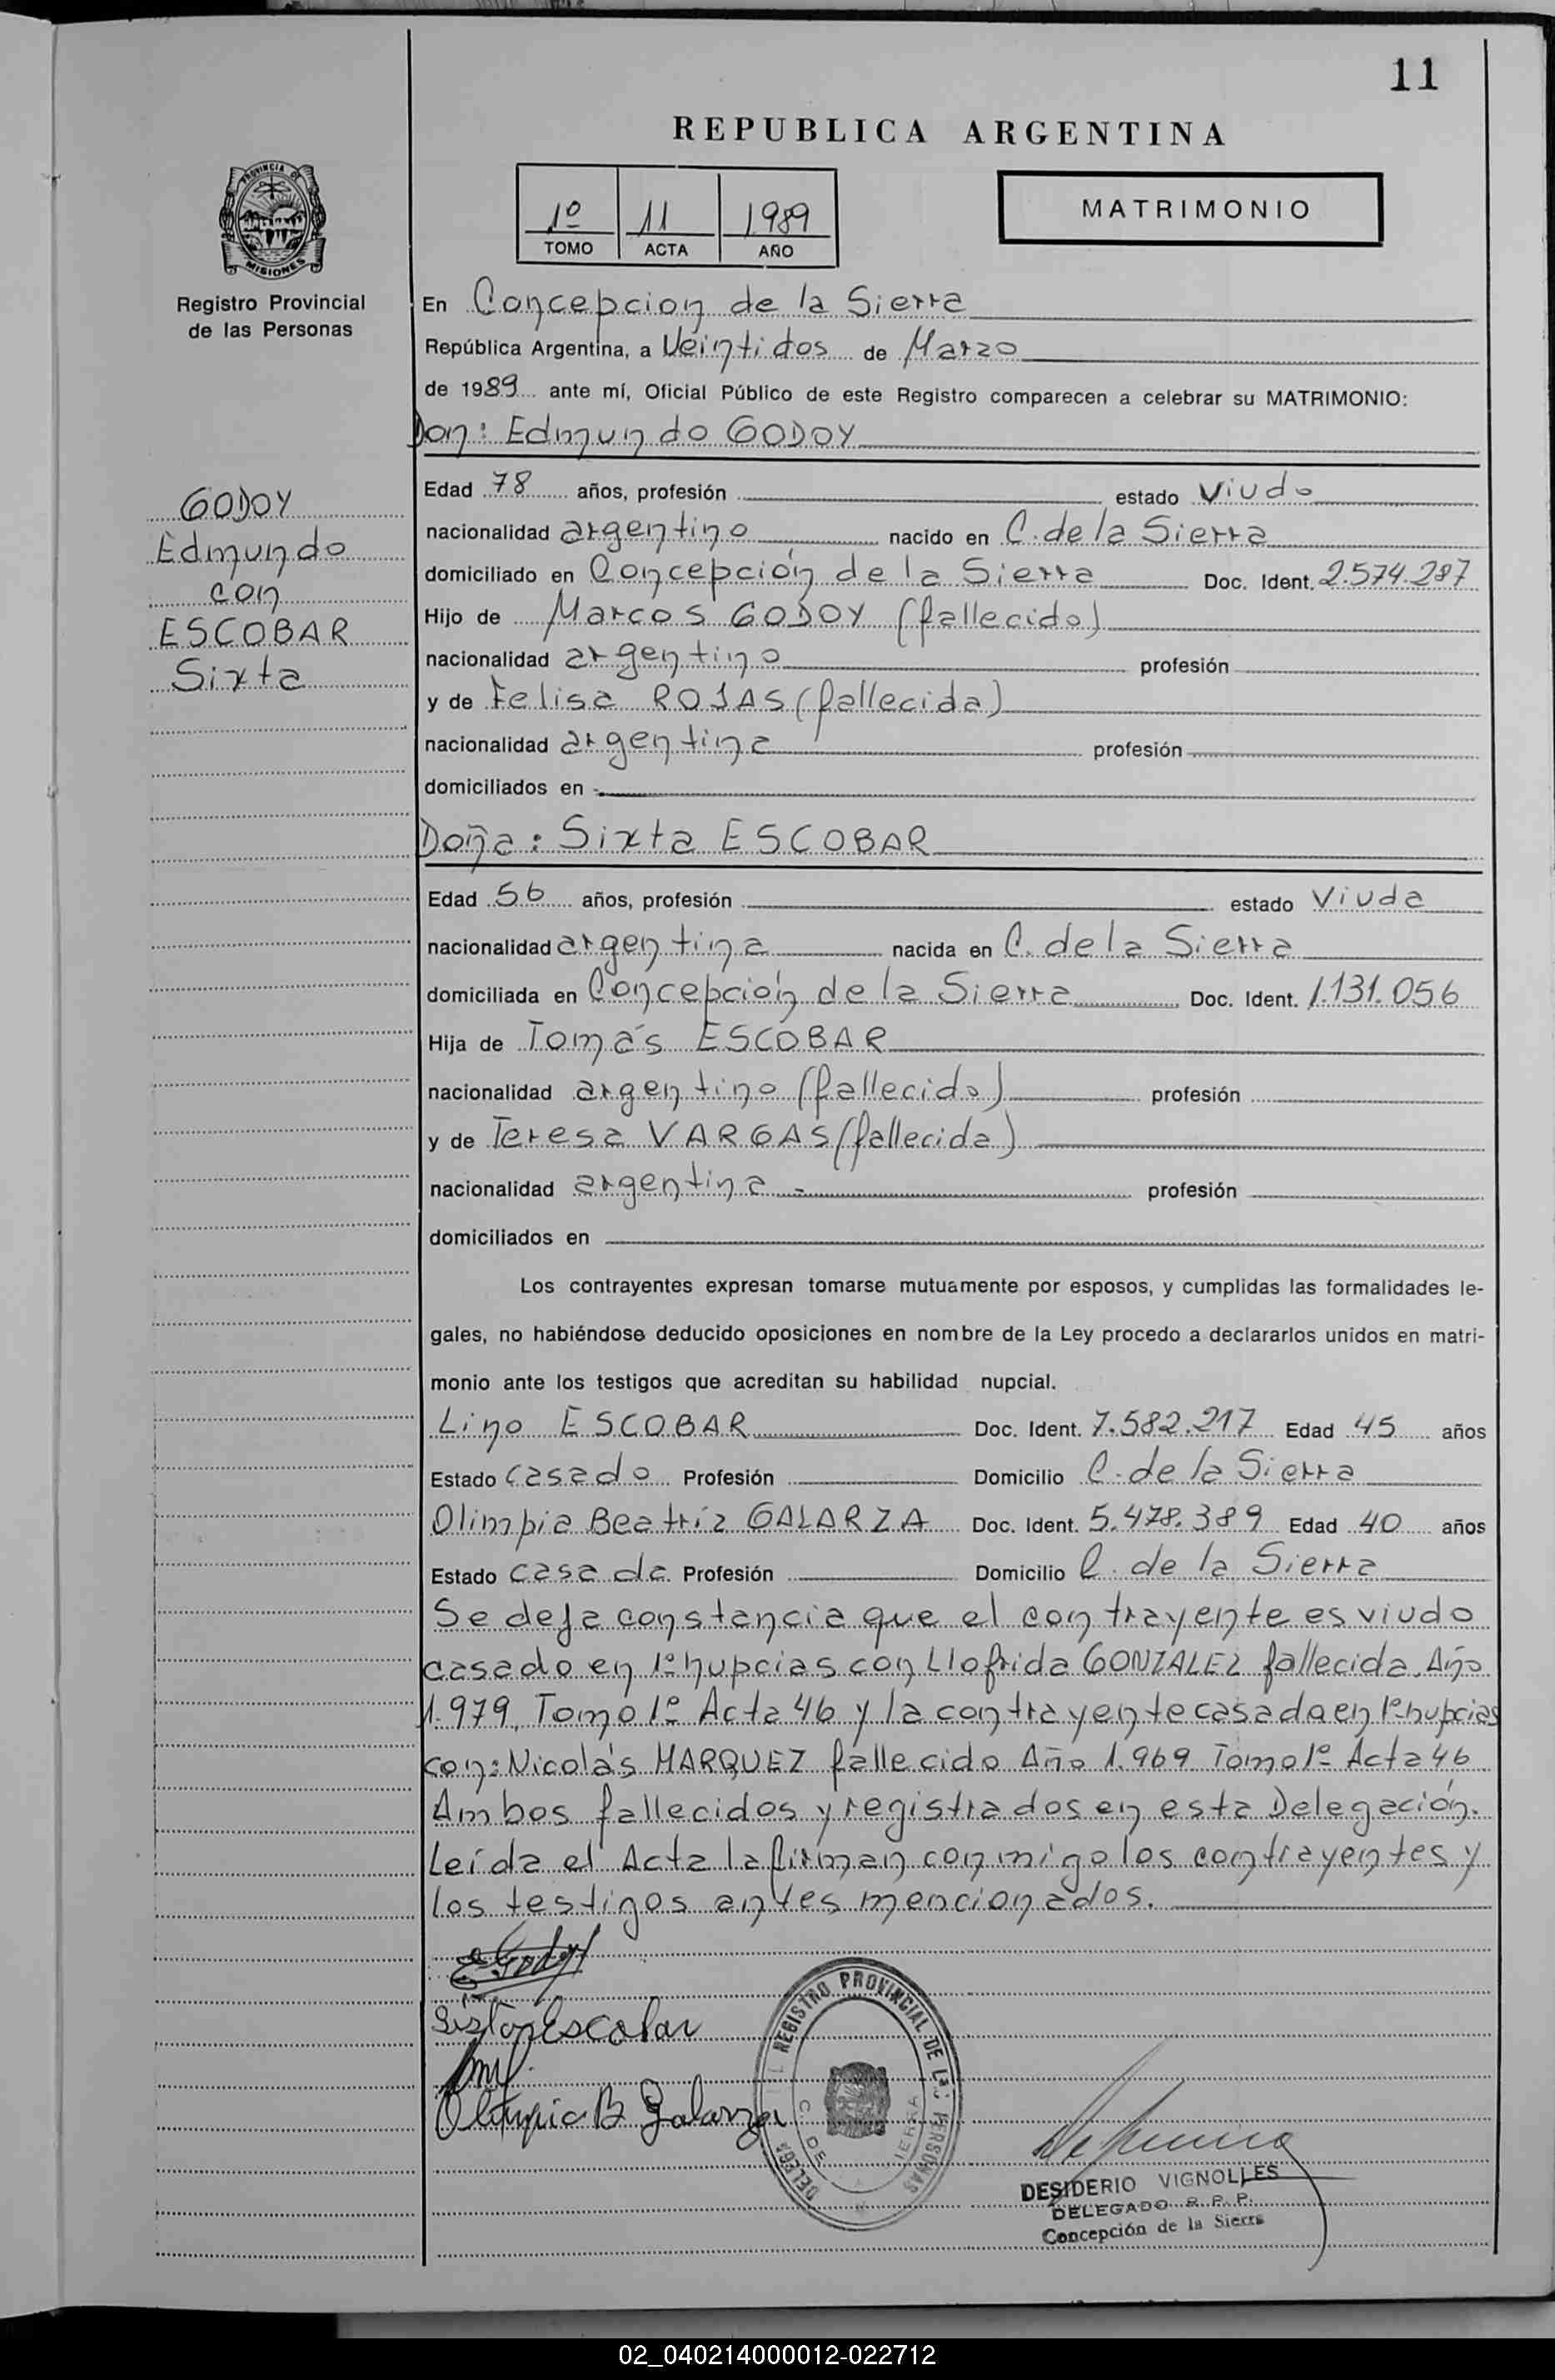 11
REPUBLICA ARGENTINA
1º 11 1989
TOMO ACTA AÑO
MATRIMONIO
PROVINCIA DE
MISIONES
Registro Provincial
de las Personas
En Concepcion de la Sierra
República Argentina, a Veintidos de Marzo
de 1989 ante mí, Oficial Público de este Registro comparecen a celebrar su MATRIMONIO:
Don: Edmundo GODOY
GODOY
Edmundo
con
ESCOBAR
Sixta
Edad 78 años, profesión estado Viudo
nacionalidad argentino nacido en C. de la Sierra
domiciliado en Concepción de la Sierra Doc. Ident. 2.574.287
Hijo de Marcos GODOY (fallecido)
nacionalidad argentino profesión
y de Felisa ROJAS (fallecida)
nacionalidad argentina profesión
domiciliados en
Doña: Sixta ESCOBAR
Edad 56 años, profesión estado Viuda
nacionalidad argentina nacida en C. de la Sierra
domiciliada en Concepción de la Sierra Doc. Ident. 1.131.056
Hija de Tomás ESCOBAR
nacionalidad argentino (fallecido) profesión
y de Teresa VARGAS (fallecida)
nacionalidad argentina - profesión
domiciliados en
Los contrayentes expresan tomarse mutuamente por esposos, y cumplidas las formalidades le-
gales, no habiéndose deducido oposiciones en nombre de la Ley procedo a declararlos unidos en matri-
monio ante los testigos que acreditan su habilidad nupcial.
Lino ESCOBAR Doc. Ident. 7.582.217 Edad 45 años
Estado casado Profesión Domicilio C. de la Sierra
Olimpia Beatríz GALARZA Doc. Ident. 5.478.389 Edad 40 años
Estado casada Profesión Domicilio C. de la Sierra
Se deja constancia que el contrayente es viudo
casado en 1º nupcias con Llofrida GONZALEZ fallecida. Año
1.979, Tomo 1º Acta 46 y la contrayente casada en 1º nupcias
con: Nicolás MARQUEZ fallecido Año 1.969 Tomo 1º Acta 46
Ambos fallecidos y registrados en esta Delegación.
Leída el Acta la firman conmigo los contrayentes y
los testigos antes mencionados.
E Godoy
Sixta Escobar
Olimpia B Galarza
REGISTRO PROVINCIAL DE LAS PERSONAS
DELEG
C. DE IERRA
DESIDERIO VIGNOLLES
DELEGADO R. P. P.
Concepción de la Sierra
02_040214000012-022712